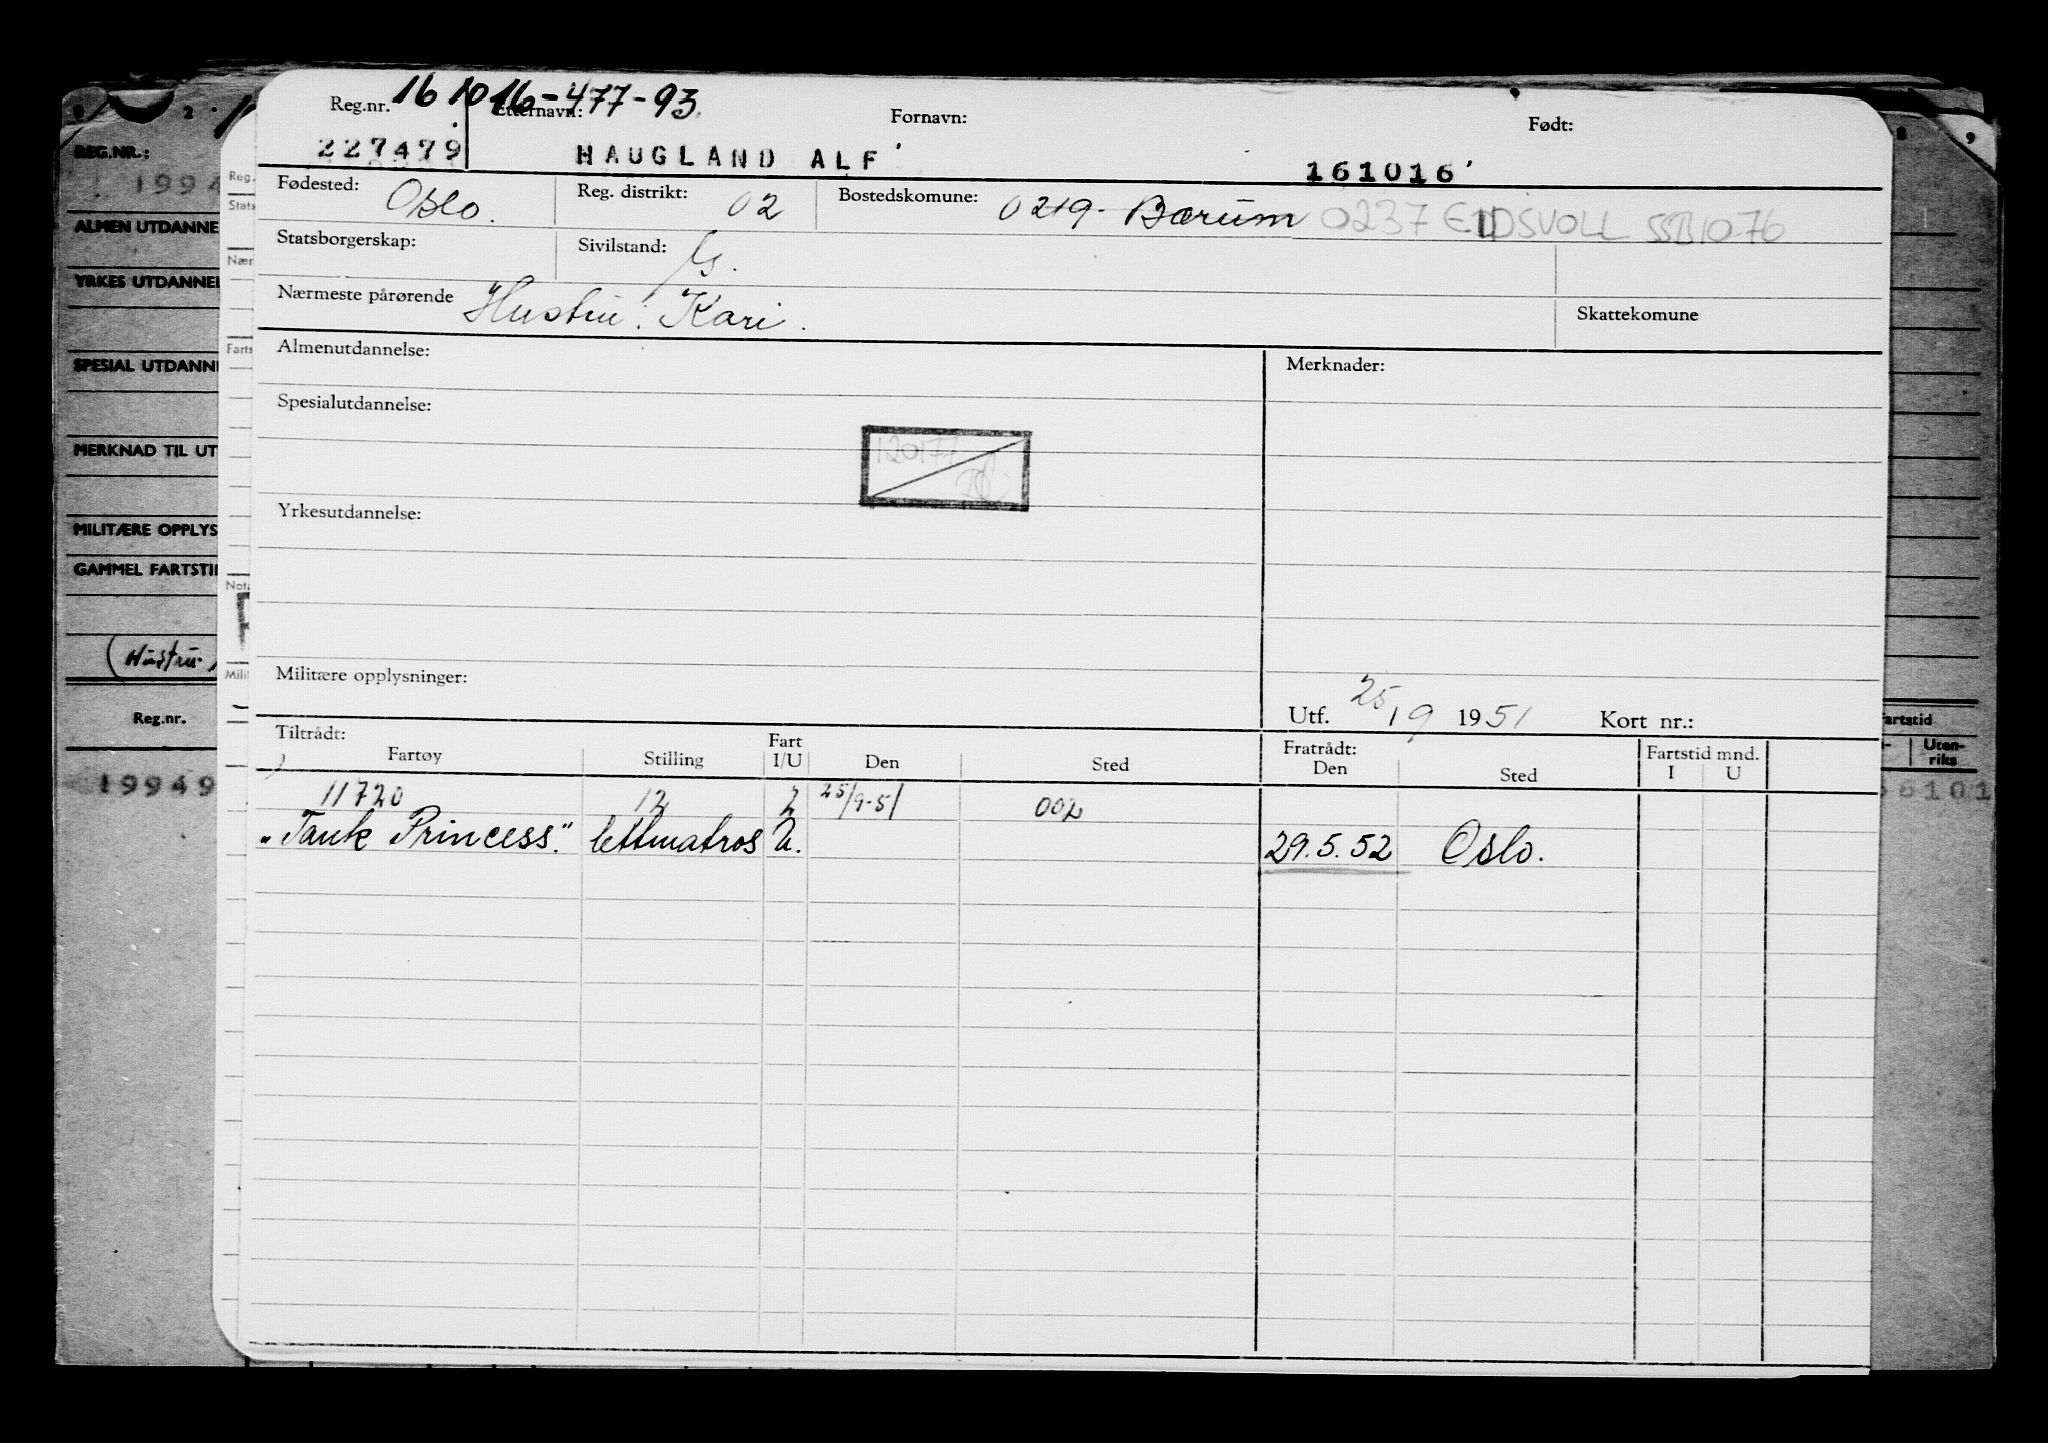 Reg.nr. 161016-477-93 Etternavn: Fornavn: Født:
227479 HAUGLAND ALF 161016
Fødested: Oslo. Reg. distrikt: 02 Bostedskomune: 0219- Bærum 0237 EIDSVOLL SSB1076
Statsborgerskap: Sivilstand: G.
Nærmeste pårørende Hustru: Kari. Skattekomune
Almenutdannelse: Merknader:
Spesialutdannelse:
120177
Yrkesutdannelse:
Militære opplysninger:
Utf. 25/9 1951 Kort nr.:
Tiltrådt: Fratrådt: Fartstid mnd.
Fartøy Stilling Fart I/U Den Sted Den Sted I U
11720 12 2 25/9-51 002
"Tank Princess." lettmatros U. 29.5.52 Oslo.
REG.NR.:
1994
ALMEN UTDANNE
YRKES UTDANNEL
SPESIAL UTDANN
MERKNAD TIL UT
MILITÆRE OPPLYS
GAMMEL FARTSTI
(Hustru
Reg.nr.
19949
Reg.
Stats
Nær
Farts
Nota
Mili
8 9
artstid
Uten-
riks
6101